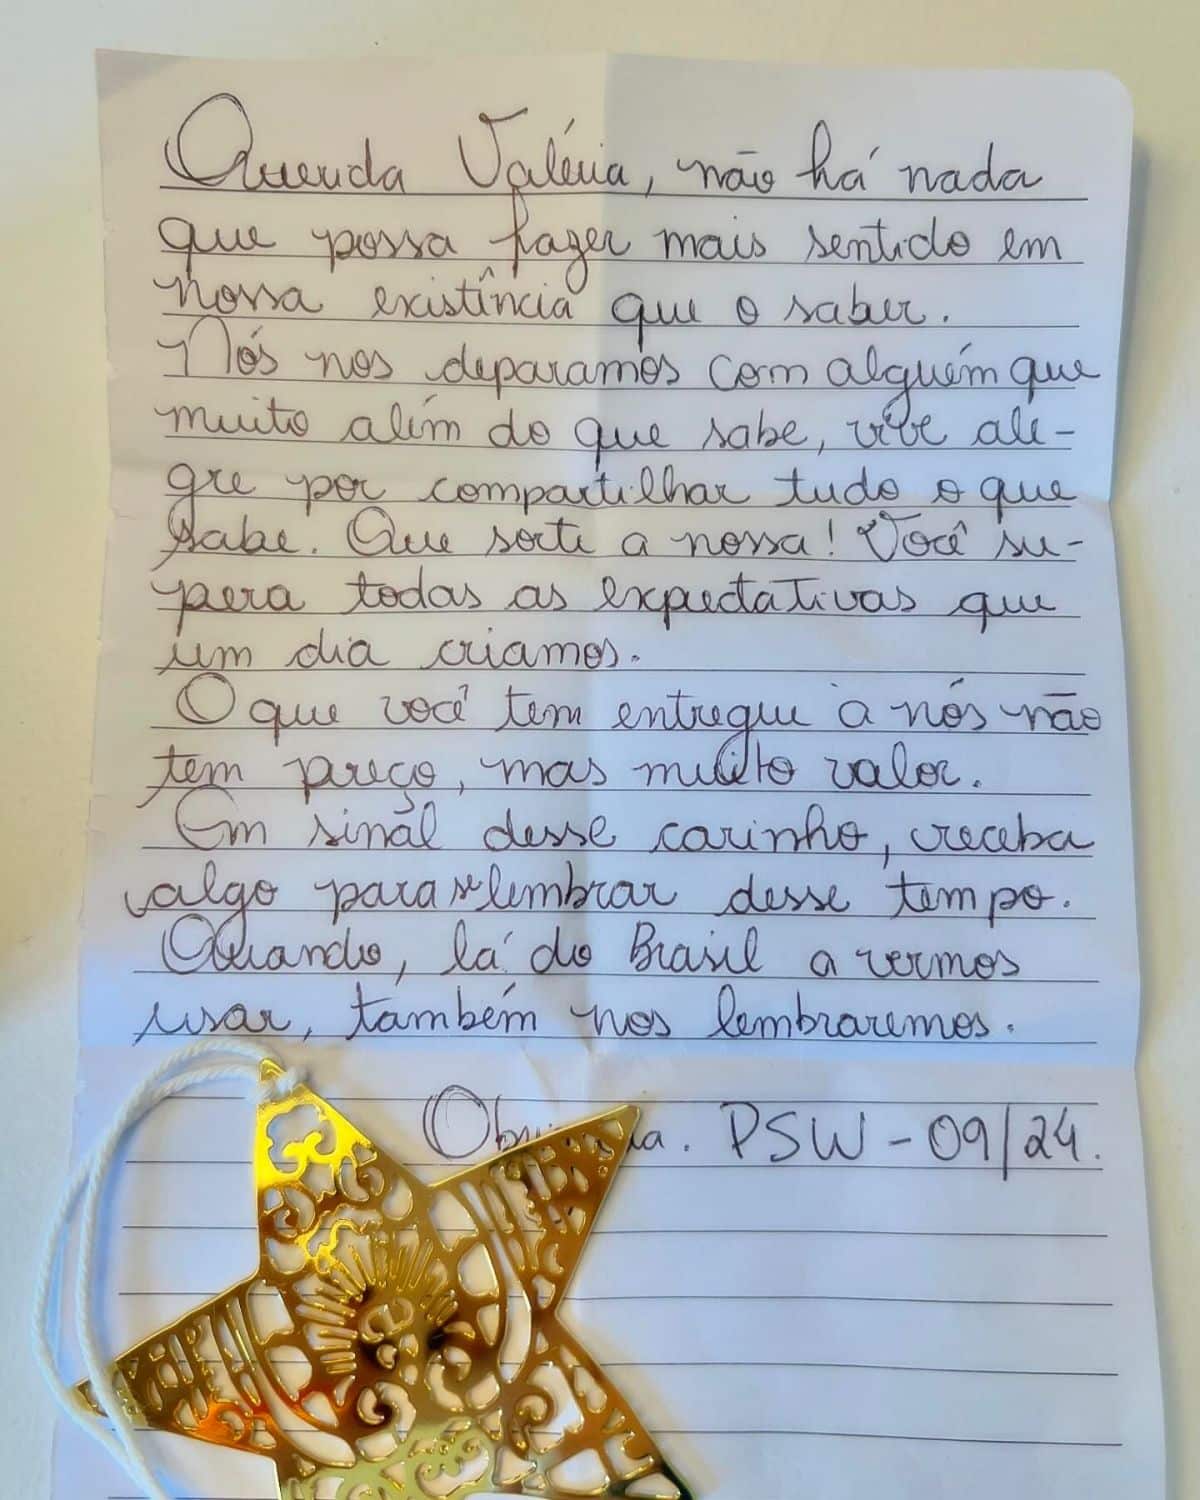 Querida Valéria, não há nada
que possa fazer mais sentido em
nossa existência que o saber.
Nós nos deparamos com alguém que
muito além do que sabe, vive ale-
gre por compartilhar tudo o que
sabe. Que sorte a nossa! Você su-
pera todas as expectativas que
um dia criamos.
O que você tem entregue à nós não
tem preço, mas muito valor.
Em sinal desse carinho, receba
algo para se lembrar desse tempo.
Quando, lá do Brasil a vermos
usar, também nos lembraremos.
PSW - 09/24.